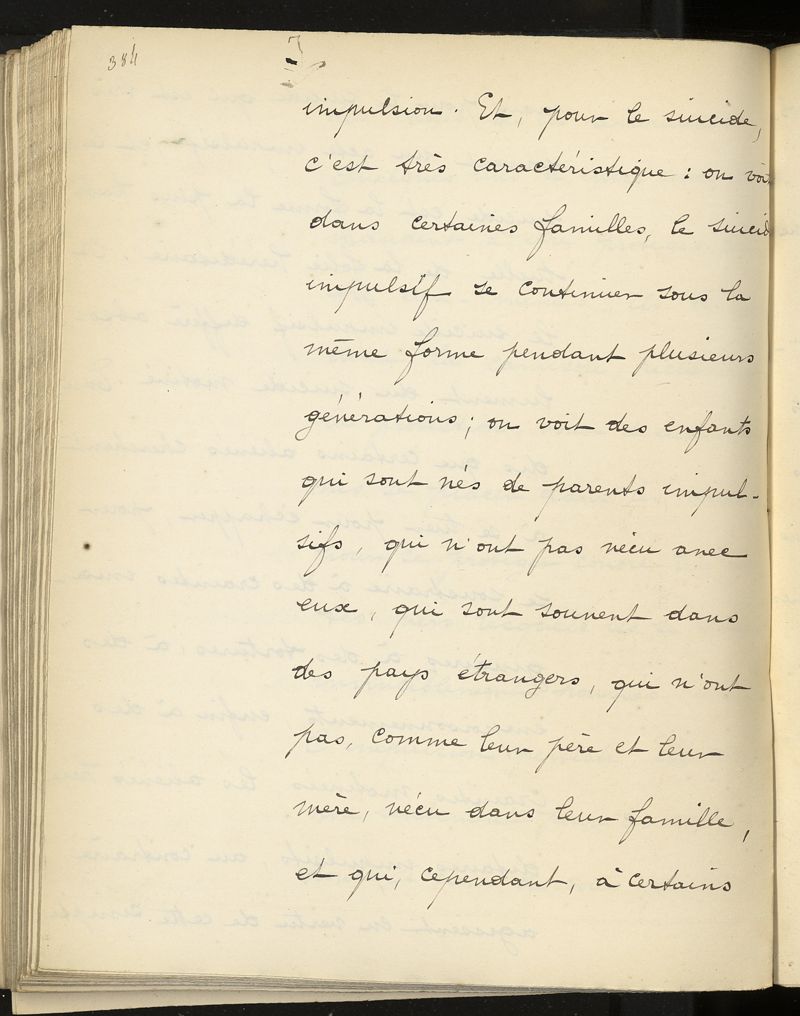 384
impulsion. Et, pour le suicide,
c'est très caractéristique : on voit
dans certaines familles, le suicid
impulsif se continuer sous la
même forme pendant plusieurs
générations ; on voit des enfants
qui sont nés de parents impul-
sifs, qui n'ont pas vécu avec
eux, qui sont souvent dans
des pays étrangers, qui n'ont
pas, comme leur père et leur
mère, vécu dans leur famille,
et qui, cependant, à certains